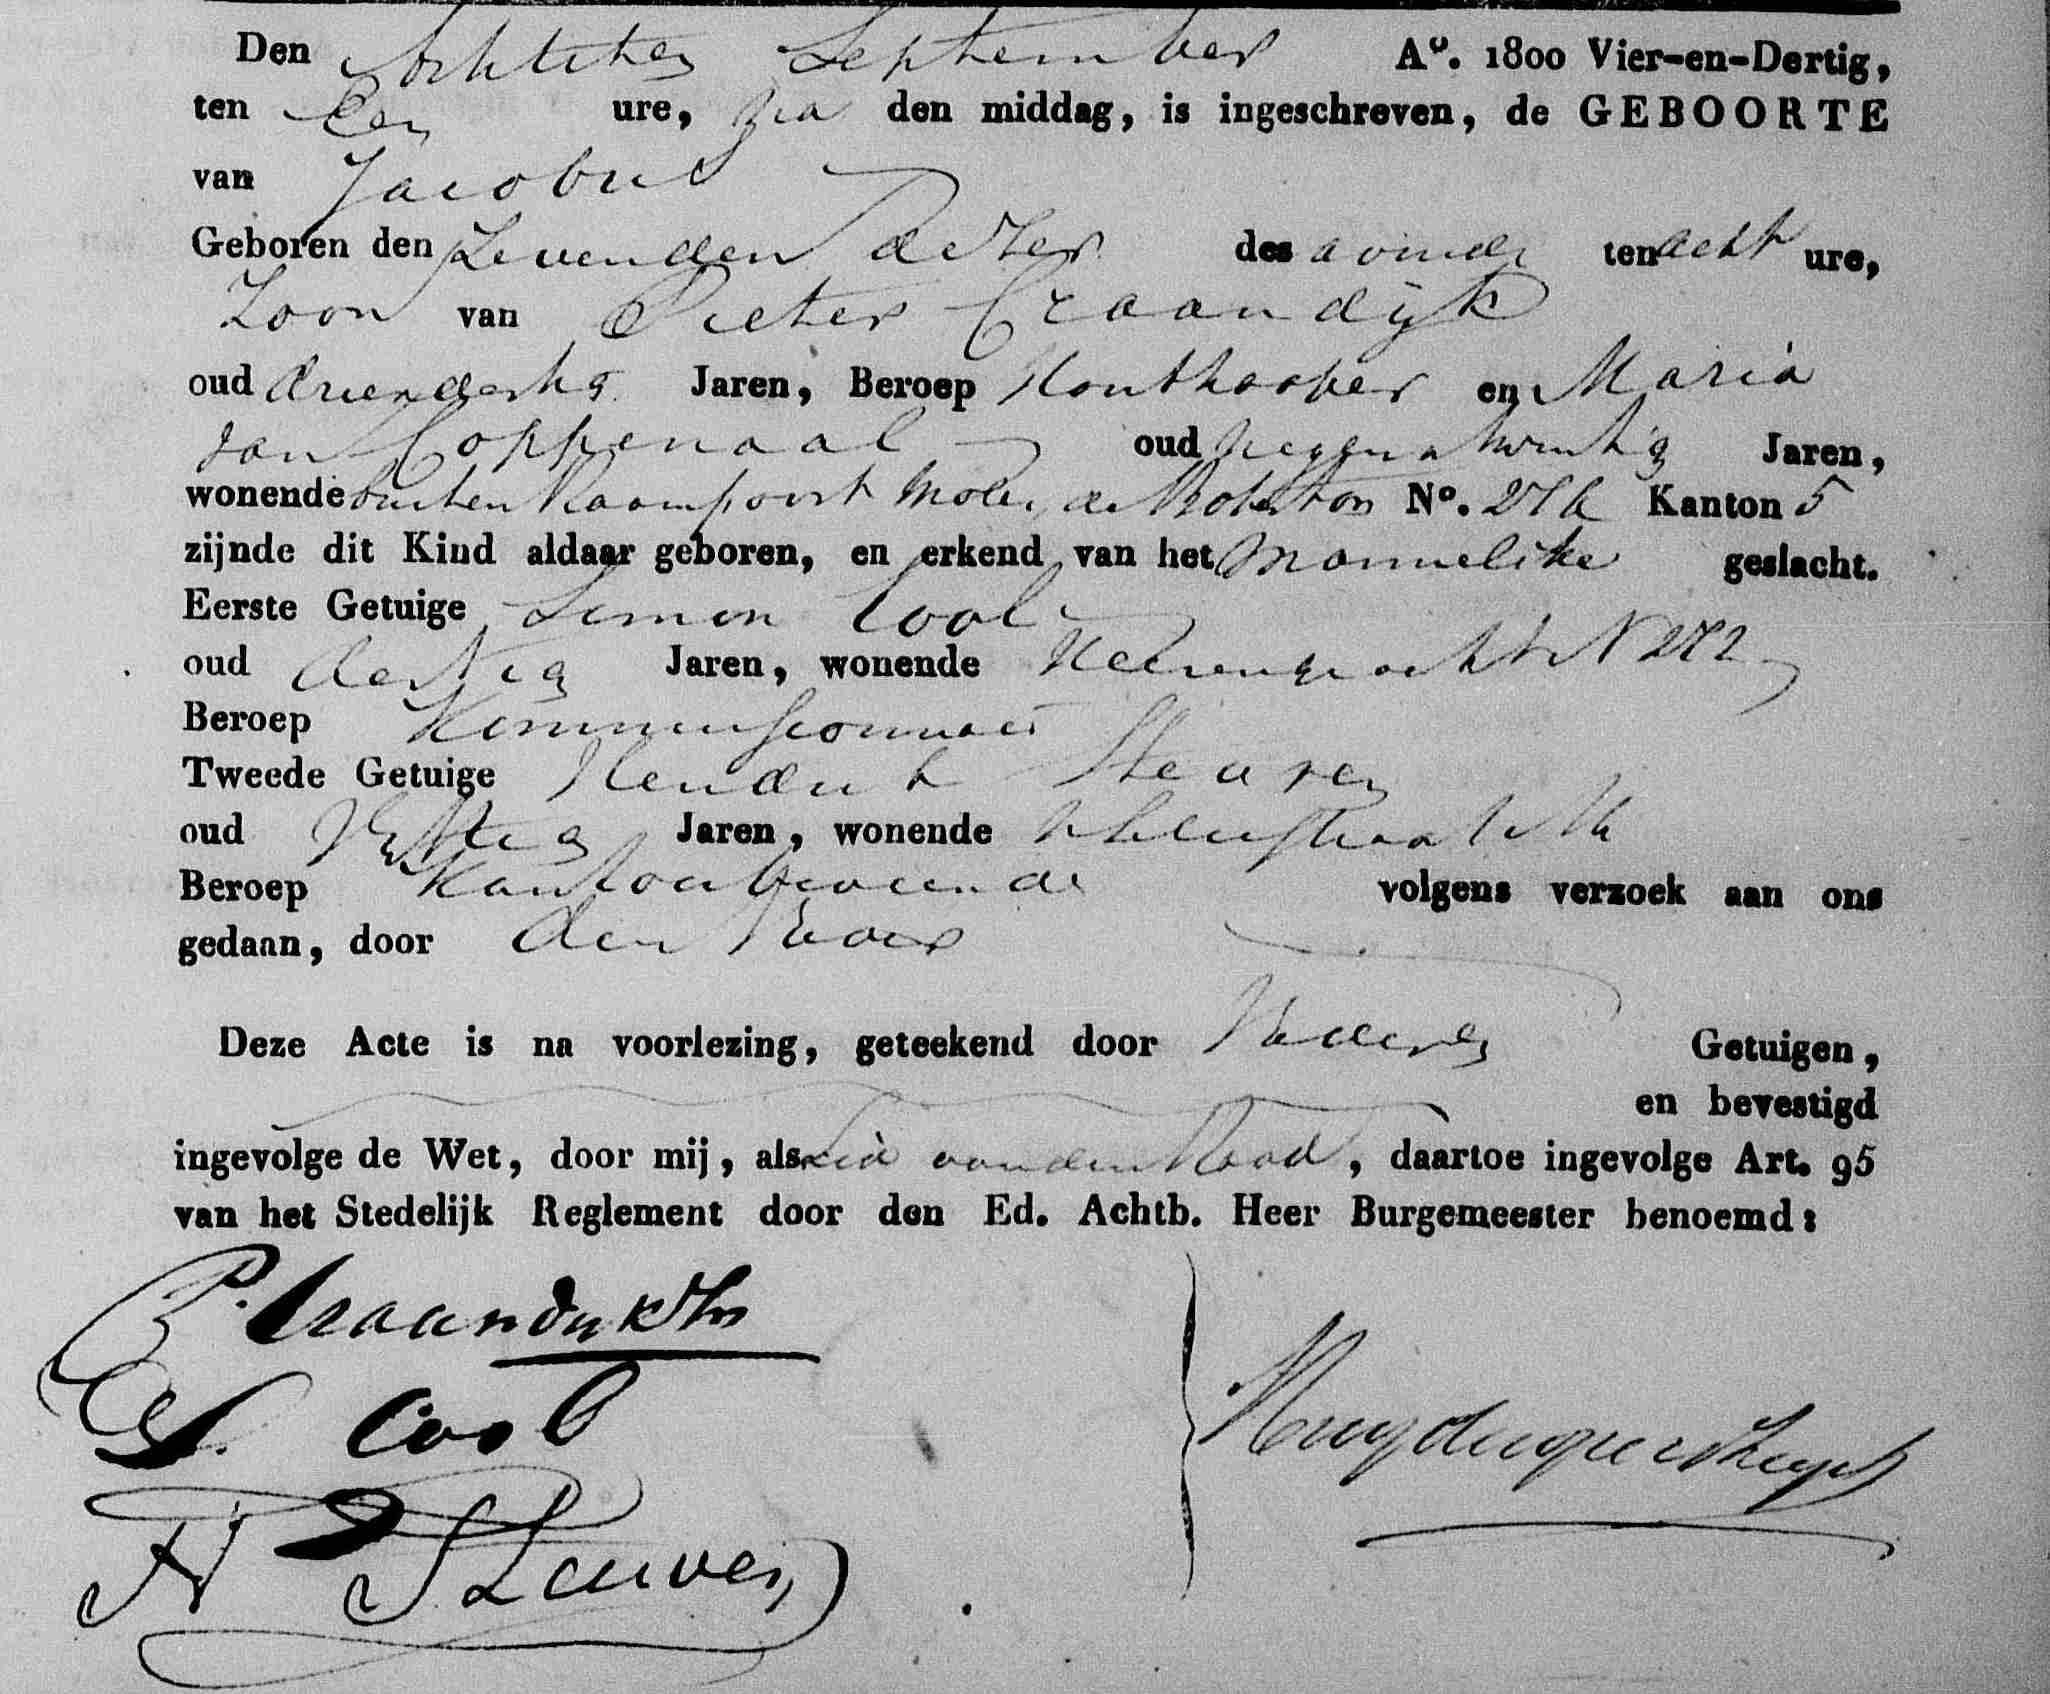 Den Achtsten September Aº. 1800 Vier-en-Dertig,
ten Een ure, na den middag, is ingeschreven, de GEBOORTE
van Jacobus
Geboren den Zevenden dezer des avonds ten acht ure,
Zoon van Pieter Craandijk
oud drieendertig Jaren, Beroep Houtkooper en Maria
van Coppenaal oud negenentwintig Jaren,
wonende buiten Raampoort Molen de Nº. Kanton 5
zijnde dit Kind aldaar geboren, en erkend van het Mannelike geslacht.
Eerste Getuige Simon Cool
oud dertig Jaren, wonende Heerengracht N 272
Beroep Kommissionnair
Tweede Getuige Hendrik Stauven
oud Jaren, wonende
Beroep Kantoorbediende volgens verzoek aan ons
gedaan, door den Vader
Deze Acte is na voorlezing, geteekend door Vader en Getuigen,
en bevestigd
ingevolge de Wet, door mij, als Lid van den Raad, daartoe ingevolge Art. 95
van het Stedelijk Reglement door den Ed. Achtb. Heer Burgemeester benoemd:
P. Craandijk
S. Cool
H Stauven